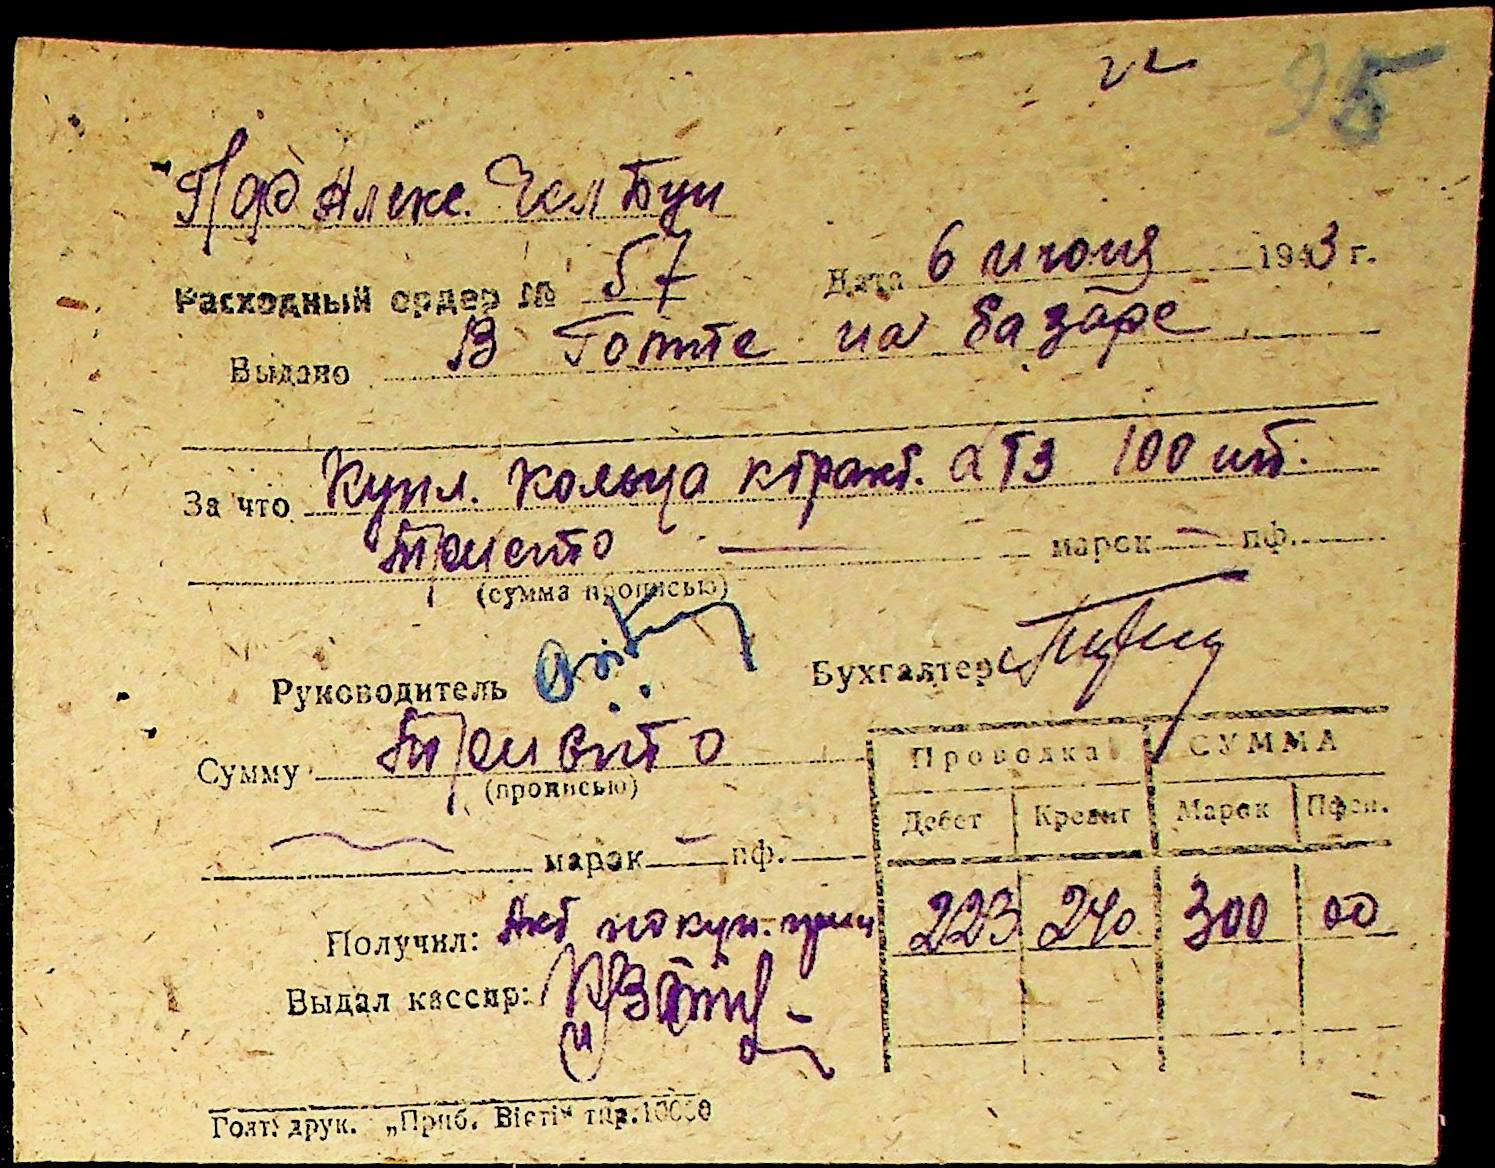 95
Расходный ордер № 57 Дата 6 июня 1943 г.
Выдано В Голте на базаре
За что Купл. кольца к тракт. ХТЗ 100 шт.
Триста — марок — пф.
(сумма прописью)
Руководитель Бухгалтер
Сумму Триста
(прописью)
Проводка СУММА
Дебет Кредит Марок Пфен.
марок — пф.
223 240 300 00
Получил: Акт покуп.
Выдал кассир:
Голт. друк. „Приб. Вісті“ тир. 10000